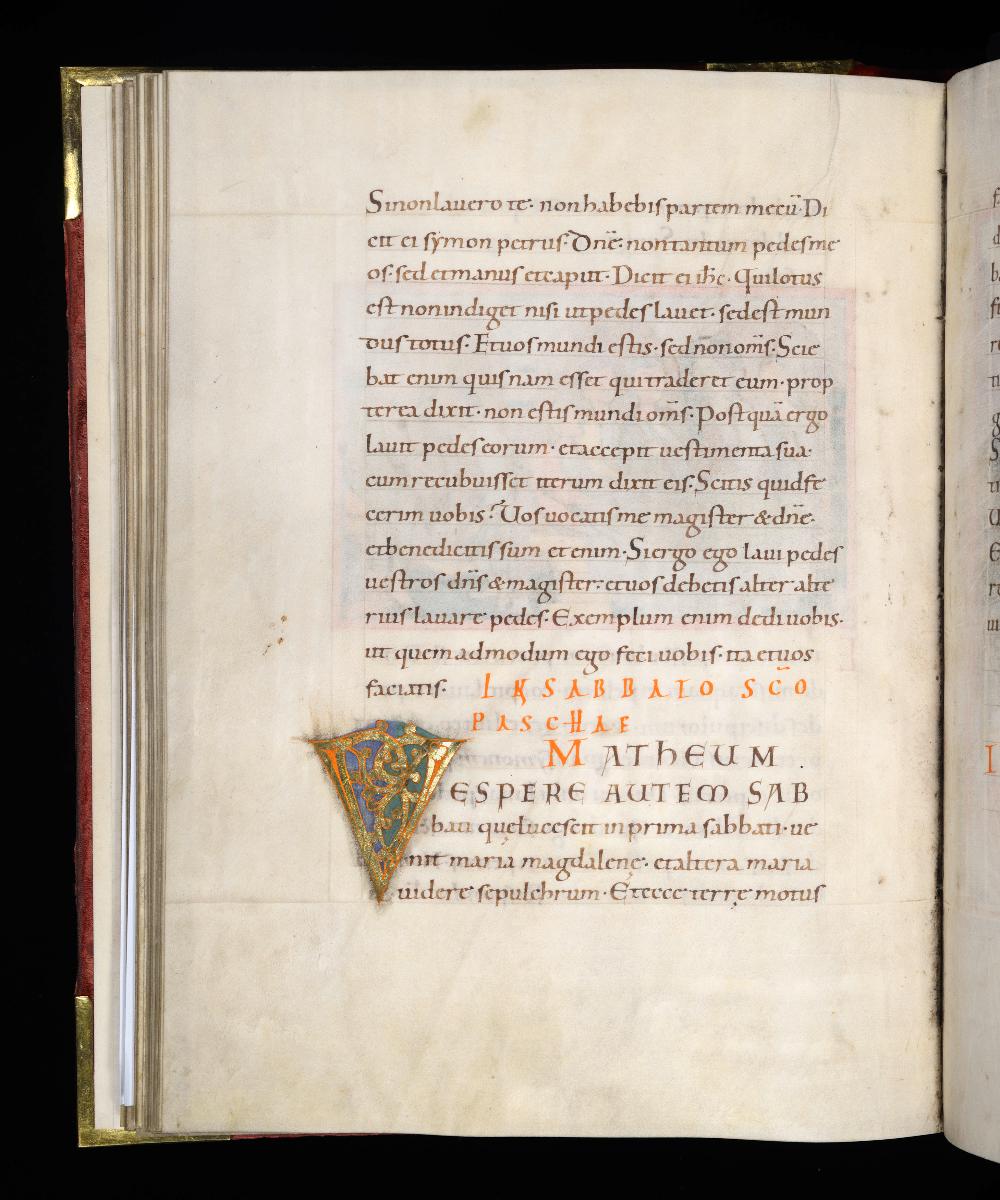 Si non lauero te· non habebis partem mecū· Di
cit ei symon petrus· Dn̄e· non tantum pedes me
os· sed et manus et caput· Dicit ei ih̄c· Qui lotus
est non indiget nisi ut pedes lauet· sed est mun
dus totus· Et uos mundi estis· sed non om̄s· Scie
bat enim quisnam esset qui traderet eum· prop
terea dixit· non estis mundi om̄s· Postquā ergo
lauit pedes eorum· et accepit uestimenta sua·
cum recubuisset iterum dixit eis· Scitis quid fe
cerim uobis? Uos uocatis me magister & dn̄e·
et benedicitis sum etenim· Si ergo ego laui pedes
uestros dn̄s & magister· et uos debetis alter alte
rius lauare pedes· Exemplum enim dedi uobis·
ut quemadmodum ego feci uobis· ita et uos
faciatis· IN SABBATO SC̄O
PASCHAE
MATHEUM
VESPERE AUTEM SAB
bati que lucescit in prima sabbati· ue
nit maria magdalenę· et altera maria
uidere sepulchrum· Et ecce terrę motus